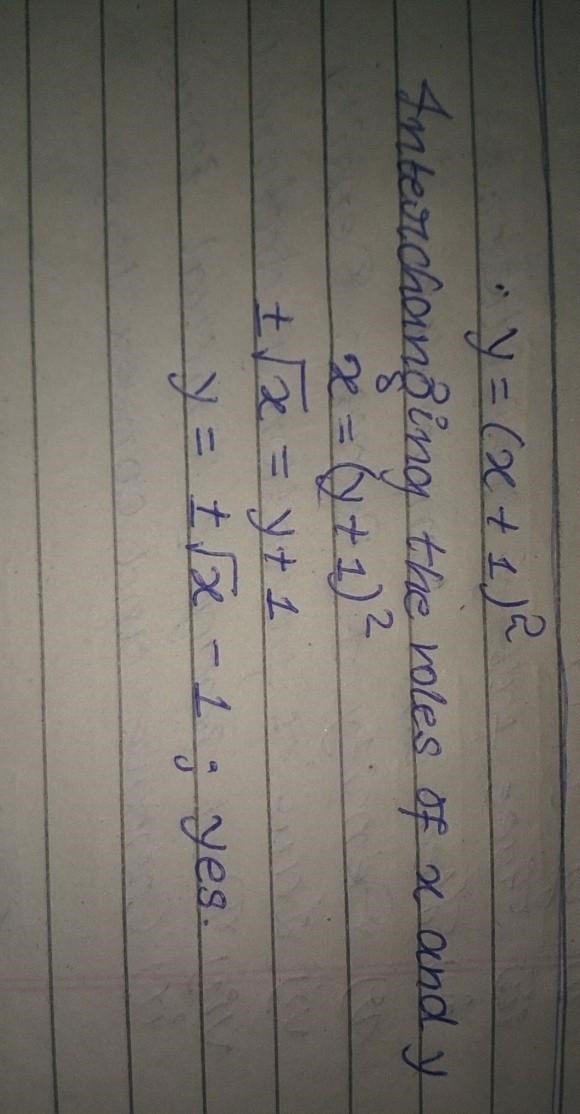 ∴ y = (x + 1)²
Interchanging the roles of x and y
x = (y + 1)²
±√x = y + 1
y = ±√x - 1 ; yes.